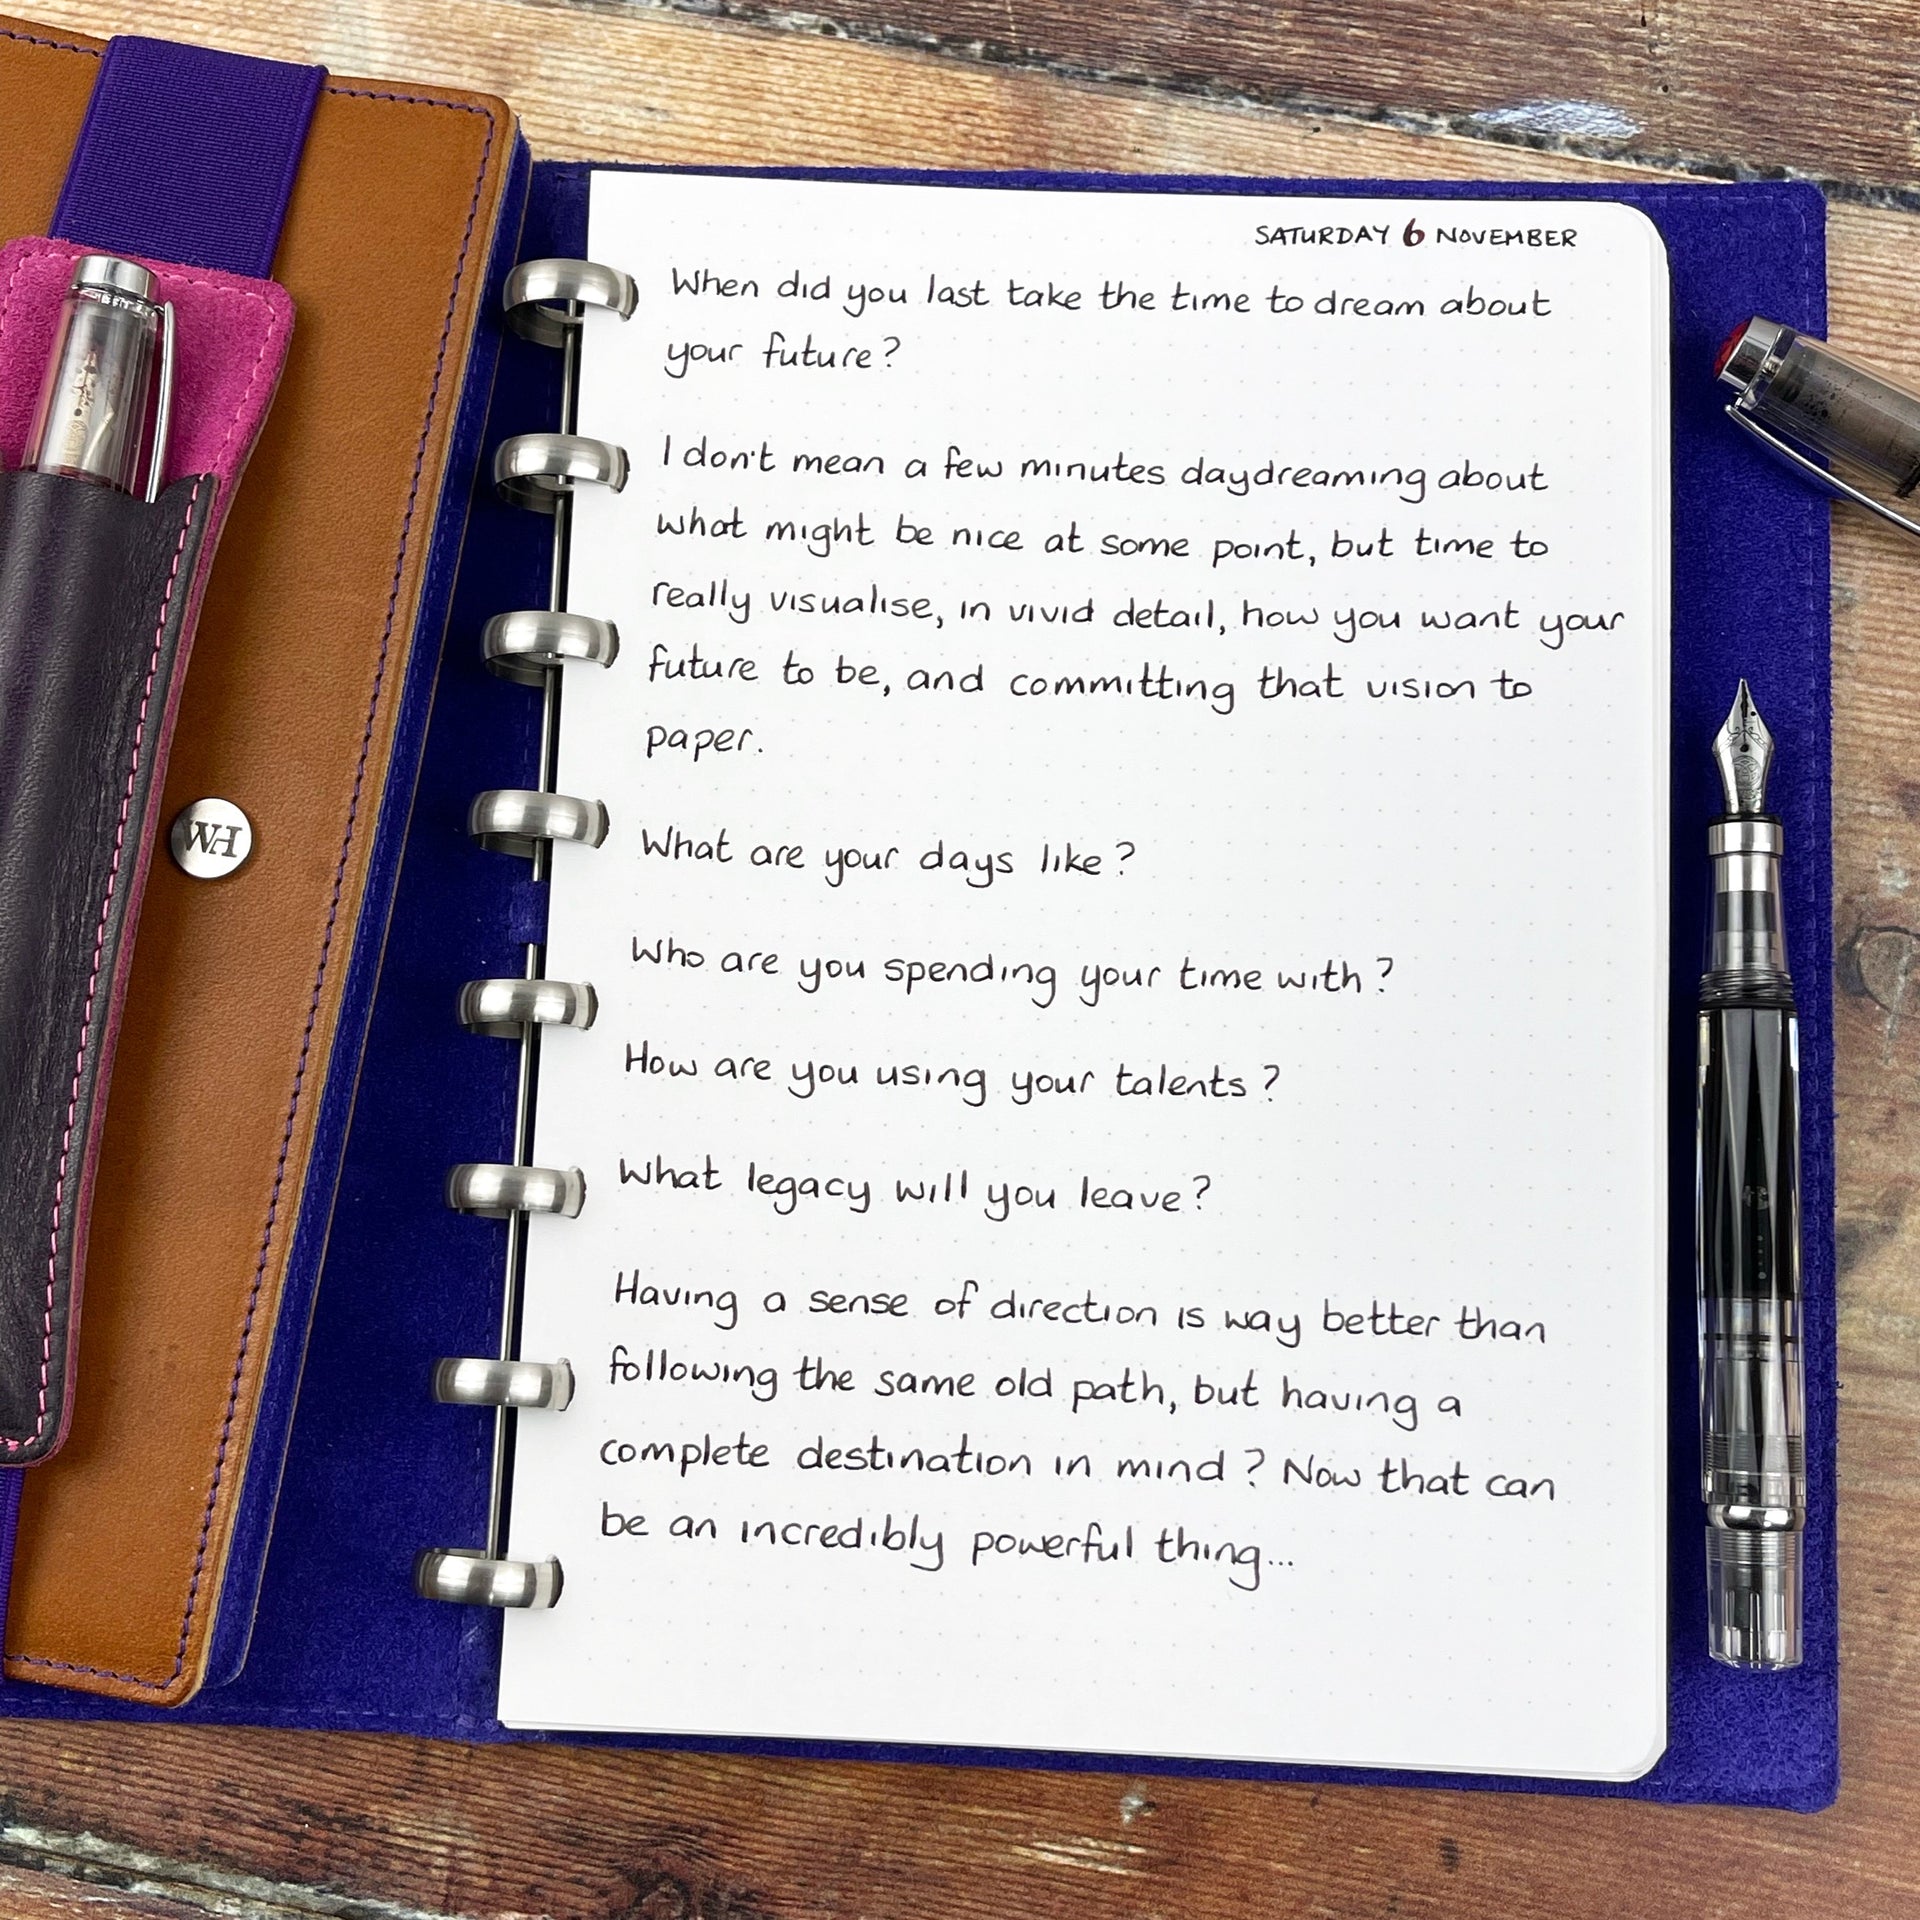 SATURDAY 6 NOVEMBER
When did you last take the time to dream about
your future?
I don't mean a few minutes daydreaming about
what might be nice at some point, but time to
really visualise, in vivid detail, how you want your
future to be, and committing that vision to
paper.
What are your days like?
Who are you spending your time with?
How are you using your talents?
What legacy will you leave?
Having a sense of direction is way better than
following the same old path, but having a
complete destination in mind? Now that can
be an incredibly powerful thing...
WH